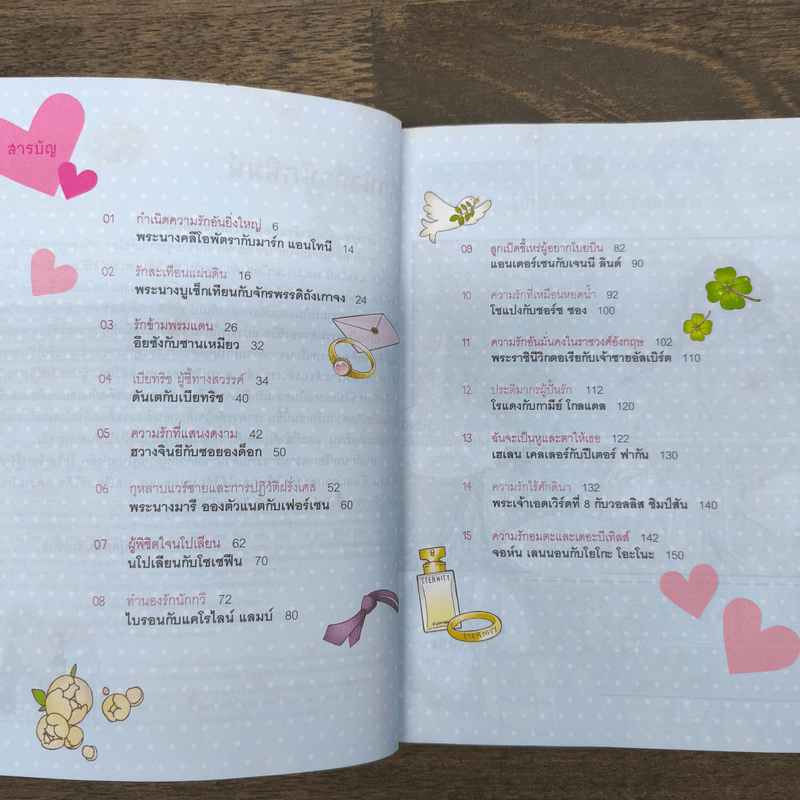 สารบัญ
01 กำเนิดความรักอันยิ่งใหญ่ 6
พระนางคลีโอพัตรากับมาร์ก แอนโทนี 14
02 รักสะเทือนแผ่นดิน 16
พระนางบูเช็กเทียนกับจักรพรรดิถังเกาจง 24
03 รักข้ามพรมแดน 26
อียซังกับซานเหมียว 32
04 เบียทริซ ผู้ชี้ทางสวรรค์ 34
ดันเตกับเบียทริซ 40
05 ความรักที่แสนงดงาม 42
ฮวางจินยีกับซอยองด็อก 50
06 กุหลาบแวร์ซายและการปฏิวัติฝรั่งเศส 52
พระนางมารี อองตัวแนตกับเฟอร์เซน 60
07 ผู้พิชิตใจนโปเลียน 62
นโปเลียนกับโซเซฟีน 70
08 ทำนองรักนักกวี 72
ไบรอนกับแคโรไลน์ แลมบ์ 80
09 ลูกเป็ดขี้เหร่ผู้อยากโบยบิน 82
แอนเดอร์เซนกับเจนนี ลินด์ 90
10 ความรักที่เหมือนหยดน้ำ 92
โชแปงกับชอร์ช ซอง 100
11 ความรักอันมั่นคงในราชวงศ์อังกฤษ 102
พระราชินีวิกตอเรียกับเจ้าชายอัลเบิร์ต 110
12 ประติมากรผู้ปั้นรัก 112
โรแดงกับกามีย์ โกลแดล 120
13 ฉันจะเป็นหูและตาให้เธอ 122
เฮเลน เคลเลอร์กับปีเตอร์ ฟากัน 130
14 ความรักไร้ศักดินา 132
พระเจ้าเอดเวิร์ดที่ 8 กับวอลลิส ซิมป์สัน 140
15 ความรักอมตะและเดอะบีเทิลส์ 142
จอห์น เลนนอนกับโยโกะ โอะโนะ 150
ETERNITY
ETERNITY